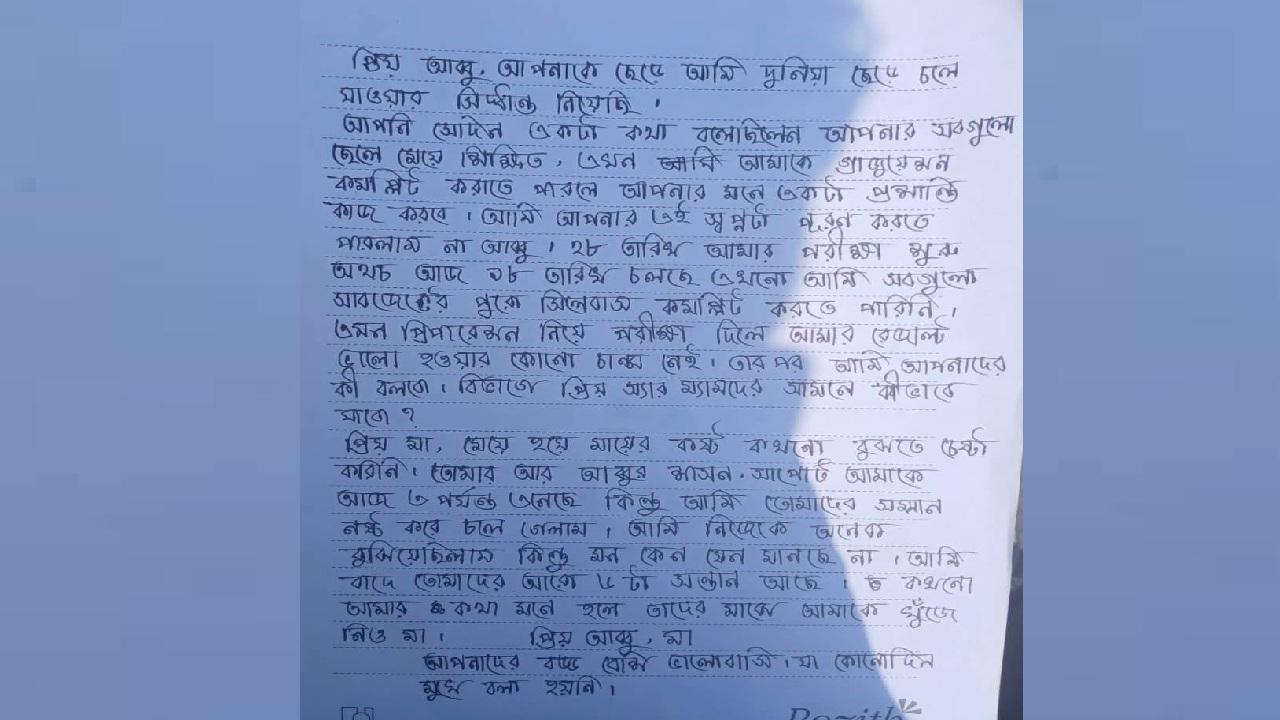 প্রিয় আব্বু, আপনাকে ছেড়ে আমি দুনিয়া ছেড়ে চলে
যাওয়ার সিদ্ধান্ত নিয়েছি।
আপনি সেদিন একটা কথা বলেছিলেন আপনার সবগুলো
ছেলে মেয়ে শিক্ষিত, এখন আমাকে গ্রাজুয়েশন
কমপ্লিট করাতে পারলে আপনার মনে একটা প্রশান্তি
কাজ করবে। আমি আপনার এই স্বপ্নটা পূরণ করতে
পারলাম না আব্বু। ২৮ তারিখ আমার পরীক্ষা শুরু
অথচ আজ ১৮ তারিখ চলছে এখনো আমি সবগুলো
সাবজেক্টের পুরো সিলেবাস কমপ্লিট করতে পারিনি।
এমন প্রিপারেশন নিয়ে পরীক্ষা দিলে আমার রেজাল্ট
ভালো হওয়ার কোনো চান্স নেই। তারপর আমি আপনাদের
কী বলবো। বিভাগে প্রিয় স্যার ম্যামদের সামনে কীভাবে
যাবো ?
প্রিয় মা, মেয়ে হয়ে মায়ের কষ্ট কখনো বুঝতে চেষ্টা
করিনি। তোমার আর আব্বুর শাসন, সাপোর্ট আমাকে
আজ এ পর্যন্ত এনেছে কিন্তু আমি তোমাদের সম্মান
নষ্ট করে চলে গেলাম। আমি নিজেকে অনেক
বুঝিয়েছিলাম কিন্তু মন কেন যেন মানছে না। আমি
বাদে তোমাদের আরো ৫ টা সন্তান আছে। কখনো
আমার কথা মনে হলে তাদের মাঝে আমাকে খুঁজে
নিও মা। প্রিয় আব্বু, মা
আপনাদের বড্ড বেশি ভালোবাসি, যা কোনোদিন
মুখে বলা হয়নি।